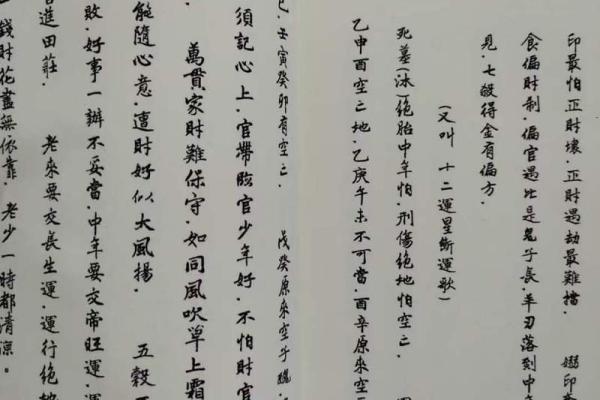 印最怕正財壞．正財遇劫最難擋． 
食偏財制．偏官遇比是鬼子長．羊刃落到中
見．七殺得金有偏方．
（又叫 十二運星斷運歌）
死墓（沐）絕胎中年怕．刑傷絕地怕空亡．
乙申酉空亡地．乙庚午未不可當．酉辛原來空亡
巳．壬寅癸卯有空亡． 戊癸原來空子
須記心上．官帶臨官少年好．不怕財官
萬貫家財難保守．如同風吹草上霜
能隨心意．遭財好似大風揚． 五穀
敗．好事一辦不妥當．中年要交帝旺運．
進田莊． 老來要交長生運．運行絕
錢財花盡無依靠．老少一時都清涼。